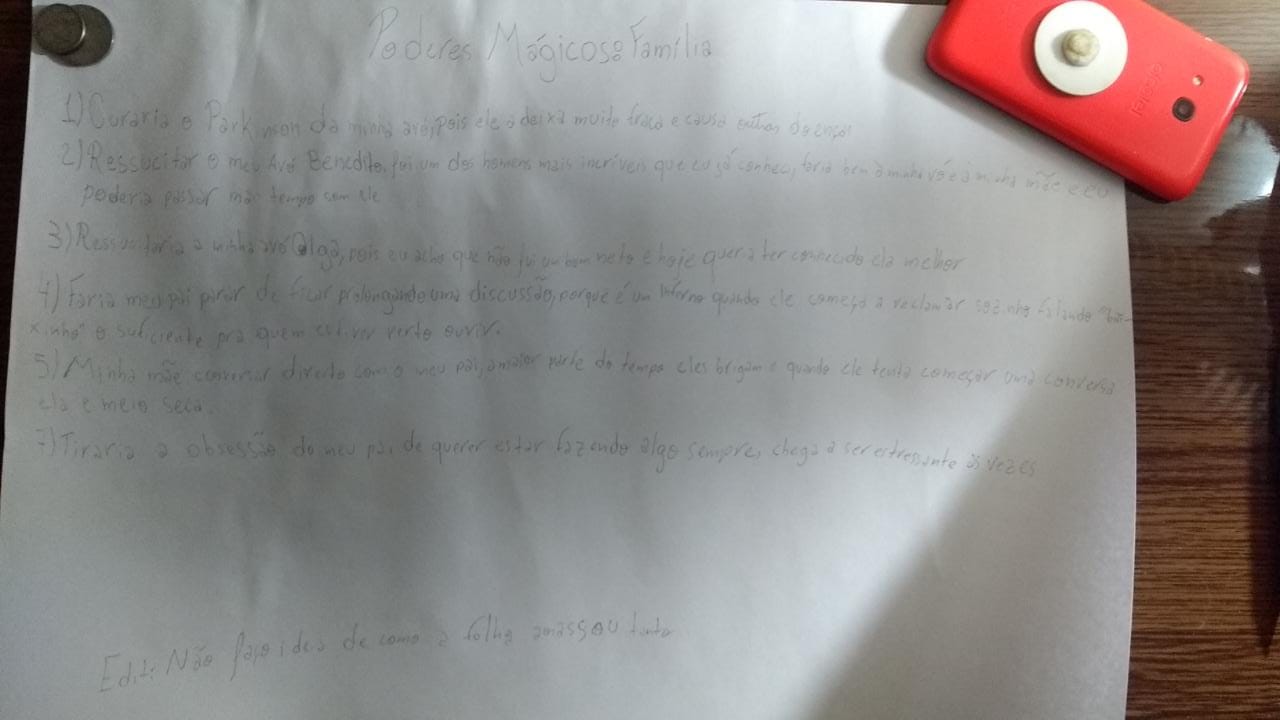 Poderes Mágicos: Família
1) Curaria o Parkinson da minha avó, pois ele a deixa muito fraca e causa outras doenças
2) Ressucitar o meu Avô Benedito, foi um dos homens mais incríveis que eu já conheci, faria bem à minha vó e à minha mãe e eu
poderia passar mais tempo com ele
3) Ressucitaria a minha avó Olga, pois eu acho que não fui um bom neto e hoje queria ter conhecido ela melhor
4) Faria meu pai parar de ficar prolongando uma discussão, porque é um inferno quando ele começa a reclamar sozinho falando "bai-
xinho" o suficiente pra quem estiver perto ouvir.
5) Minha mãe conversar direito com o meu pai, a maior parte do tempo eles brigam e quando ele tenta começar uma conversa
ela é meio seca.
7) Tiraria a obsessão do meu pai de querer estar fazendo algo sempre, chega a ser estressante às vezes
Edit: Não faço ideia de como a folha amassou tanto